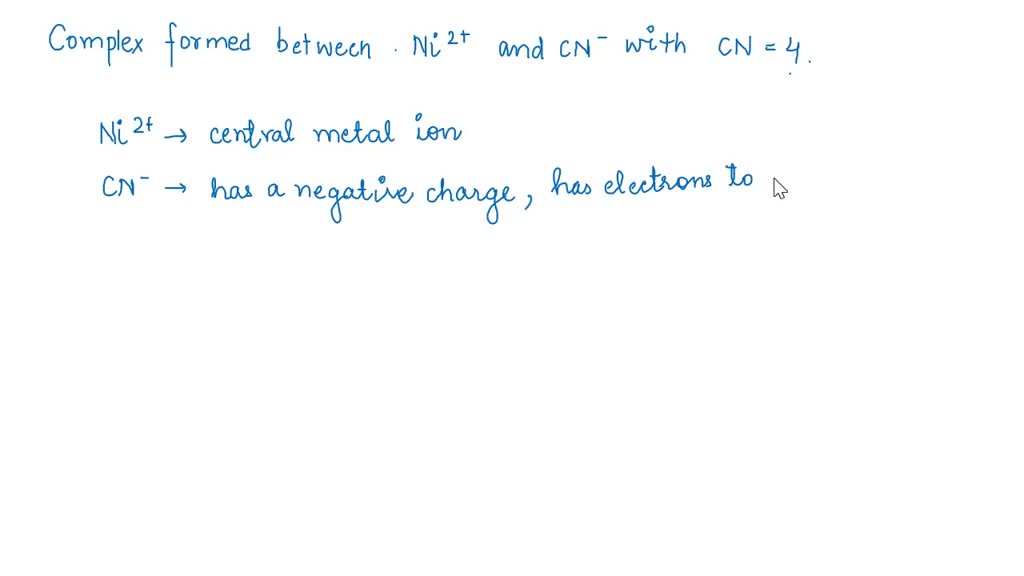 Complex formed between Ni²⁺ and CN⁻ with CN = 4.
Ni²⁺ → central metal ion
CN⁻ → has a negative charge, has electrons to